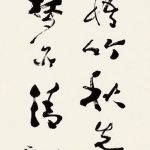 竹秋先
夢亦清